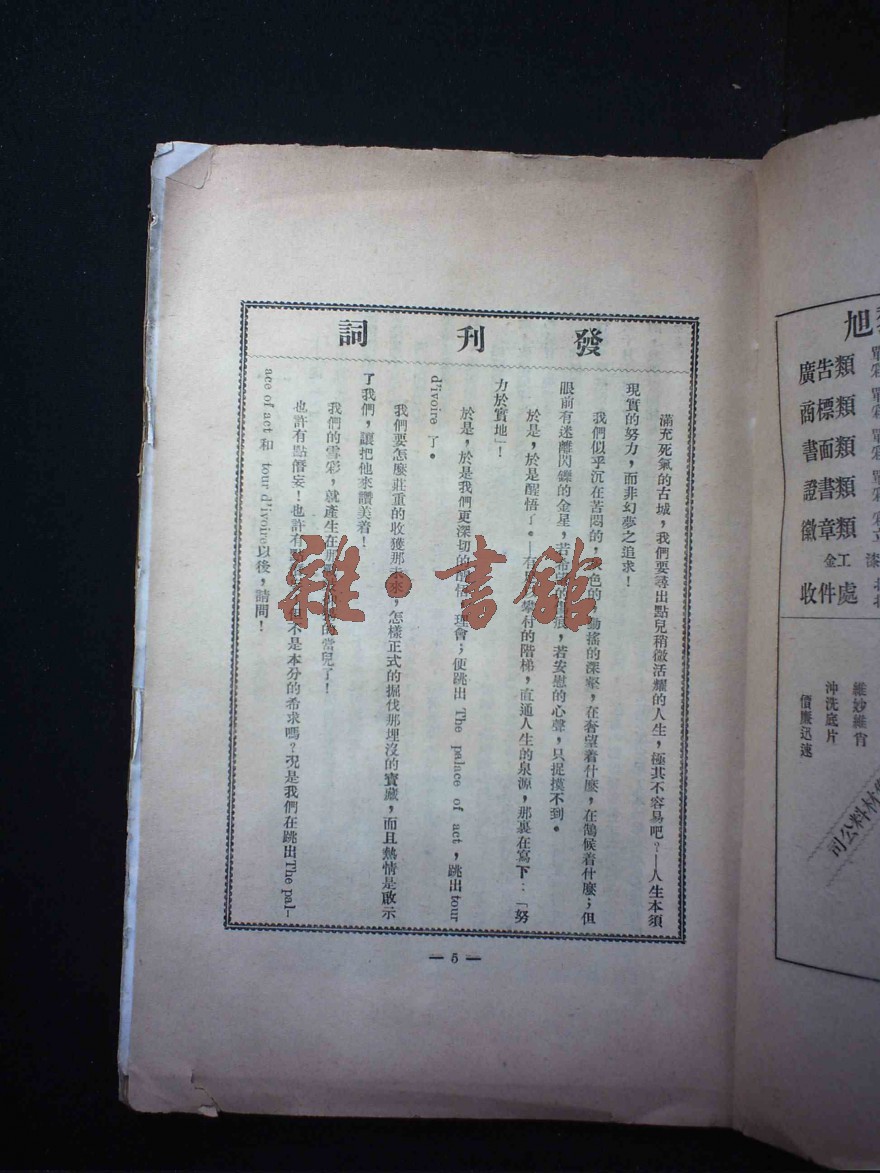 發刊詞
滿充死氣的古城，我們要尋出點兒稍微活耀的人生，極其不容易吧？—人生本須
現實的努力，而非幻夢之追求！
我們似乎沉在苦悶的，色的動搖的深壑，在奢望着什麼，在鵠候着什麼；但
眼前有迷離閃鑠的金星，若希的，若安慰的心聲，只捉摸不到。
於是，於是醒悟了。—有攀村的階梯，直通人生的泉源，那裏在寫下：「努
力於實地」！
於是，於是我們更深切的理會；便跳出 The palace of act，跳出 tour
d'ivoire 了。
我們要怎麼莊重的收獲那未來，怎樣正式的掘伐那埋沒的寶藏，而且熱情是敢示
了我們，讓把他來讚美着！
我們的雪彩，就產生在那的當兒了！
也許有點僭妄！也許有不是本分的希求嗎？况是我們在跳出The pal-
ace of act 和 tour d'ivoire以後，請問！
— 5 —
旭
廣告類
商標類
書面類
證書類
徽章類
金工漆
收件處
維妙維肖
沖洗底片
價廉迅速
材料公司
雜·書館